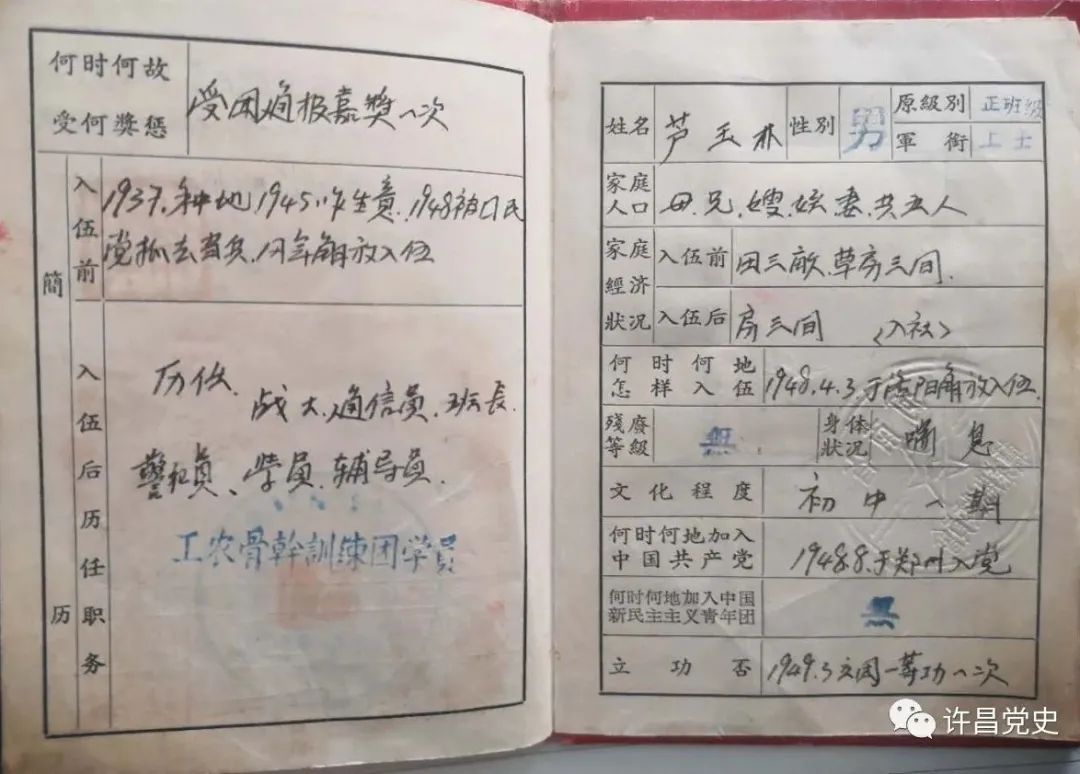 何时何故
受何獎惩
受团通报嘉獎一次
簡历
入伍前
1937.种地1945.作生意.1948被口民
党抓去當兵,同年解放入伍
入伍后历任职务
历任.
战士.通信员.班长.
警卫员、学员、辅导员.
工农骨幹訓練团学員
姓名
芦玉林
性別
男
原級別
正班級
軍銜
上士
家庭
人口
母.兄.嫂.侄.妻.共五人
家庭
經济
狀况
入伍前
田三畝.草房三间.
入伍后
房三间 〈入社〉
何时何地
怎样入伍
1948.4.3于洛阳解放入伍
殘廢
等級
無
身体
狀况
喘息
文化程度
初中一期
何时何地加入
中国共产党
1948.8.于郑州入党
何时何地加入中国
新民主主义青年团
無
立功否
1949.3立团一等功一次
许昌党史